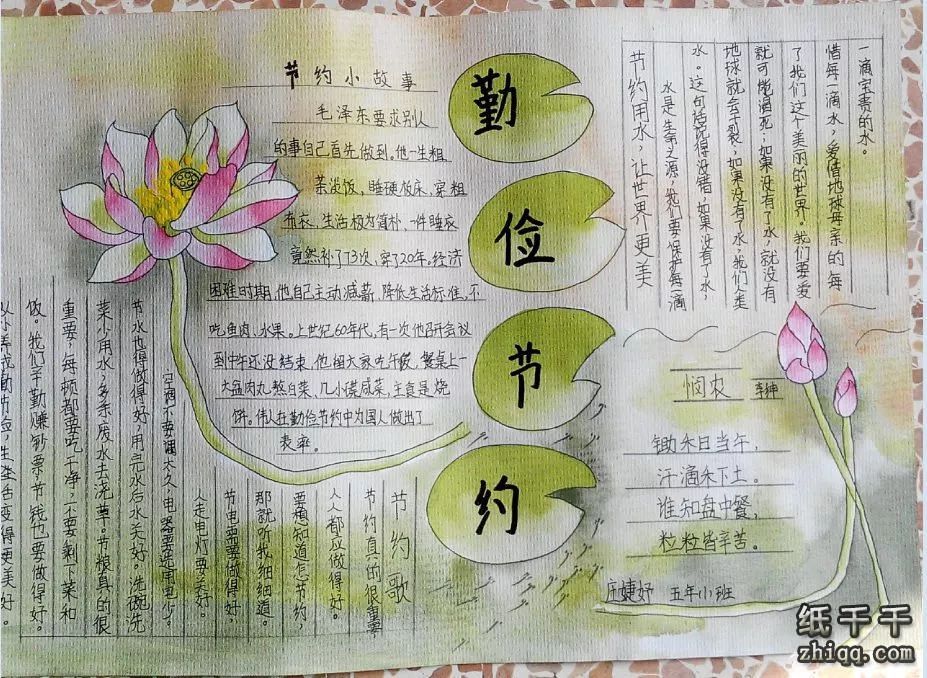 勤
俭
节
约
节约小故事
毛泽东要求别人
的事自己首先做到。他一生粗
茶淡饭，睡硬板床，穿粗
布衣，生活极为简朴，一件睡衣
竟然补了73次，穿了20年。经济
困难时期，他自己主动减薪、降低生活标准，不
吃鱼肉、水果。上世纪60年代，有一次他召开会议
到中午还没结束，他留大家吃午餐，餐桌上一
大盆肉丸熬白菜、几小碟咸菜，主食是烧
饼。伟人在勤俭节约中为国人做出了
表率。
节约用水，让世界更美
水是生命之源，我们要保护每一滴
水。这句话说得没错，如果没有了水，
地球就会干裂，如果没有了水，我们人类
就可能渴死；如果没有了水，就没有
了我们这个美丽的世界。我们要爱
惜每一滴水，爱惜地球母亲的每
一滴宝贵的水。
悯农
李绅
锄禾日当午，
汗滴禾下土。
谁知盘中餐，
粒粒皆辛苦。
节约歌
节约真的很重要
人人都应做得好。
要想知道怎节约，
那就听我细细道。
节电需要做得好，
人走电灯要关好。
电器要选用电少。
空调不要调太久，
节水也得做得好，用完水后水关好。洗碗洗
菜少用水，多余废水去浇草。节粮真的很
重要，每顿都要吃干净，不要剩下菜和
饭。我们辛勤赚钞票，节钱也要做得好。
生活变得更美好。
庄婕妤 五年小班
纸千千
zhiqq.com